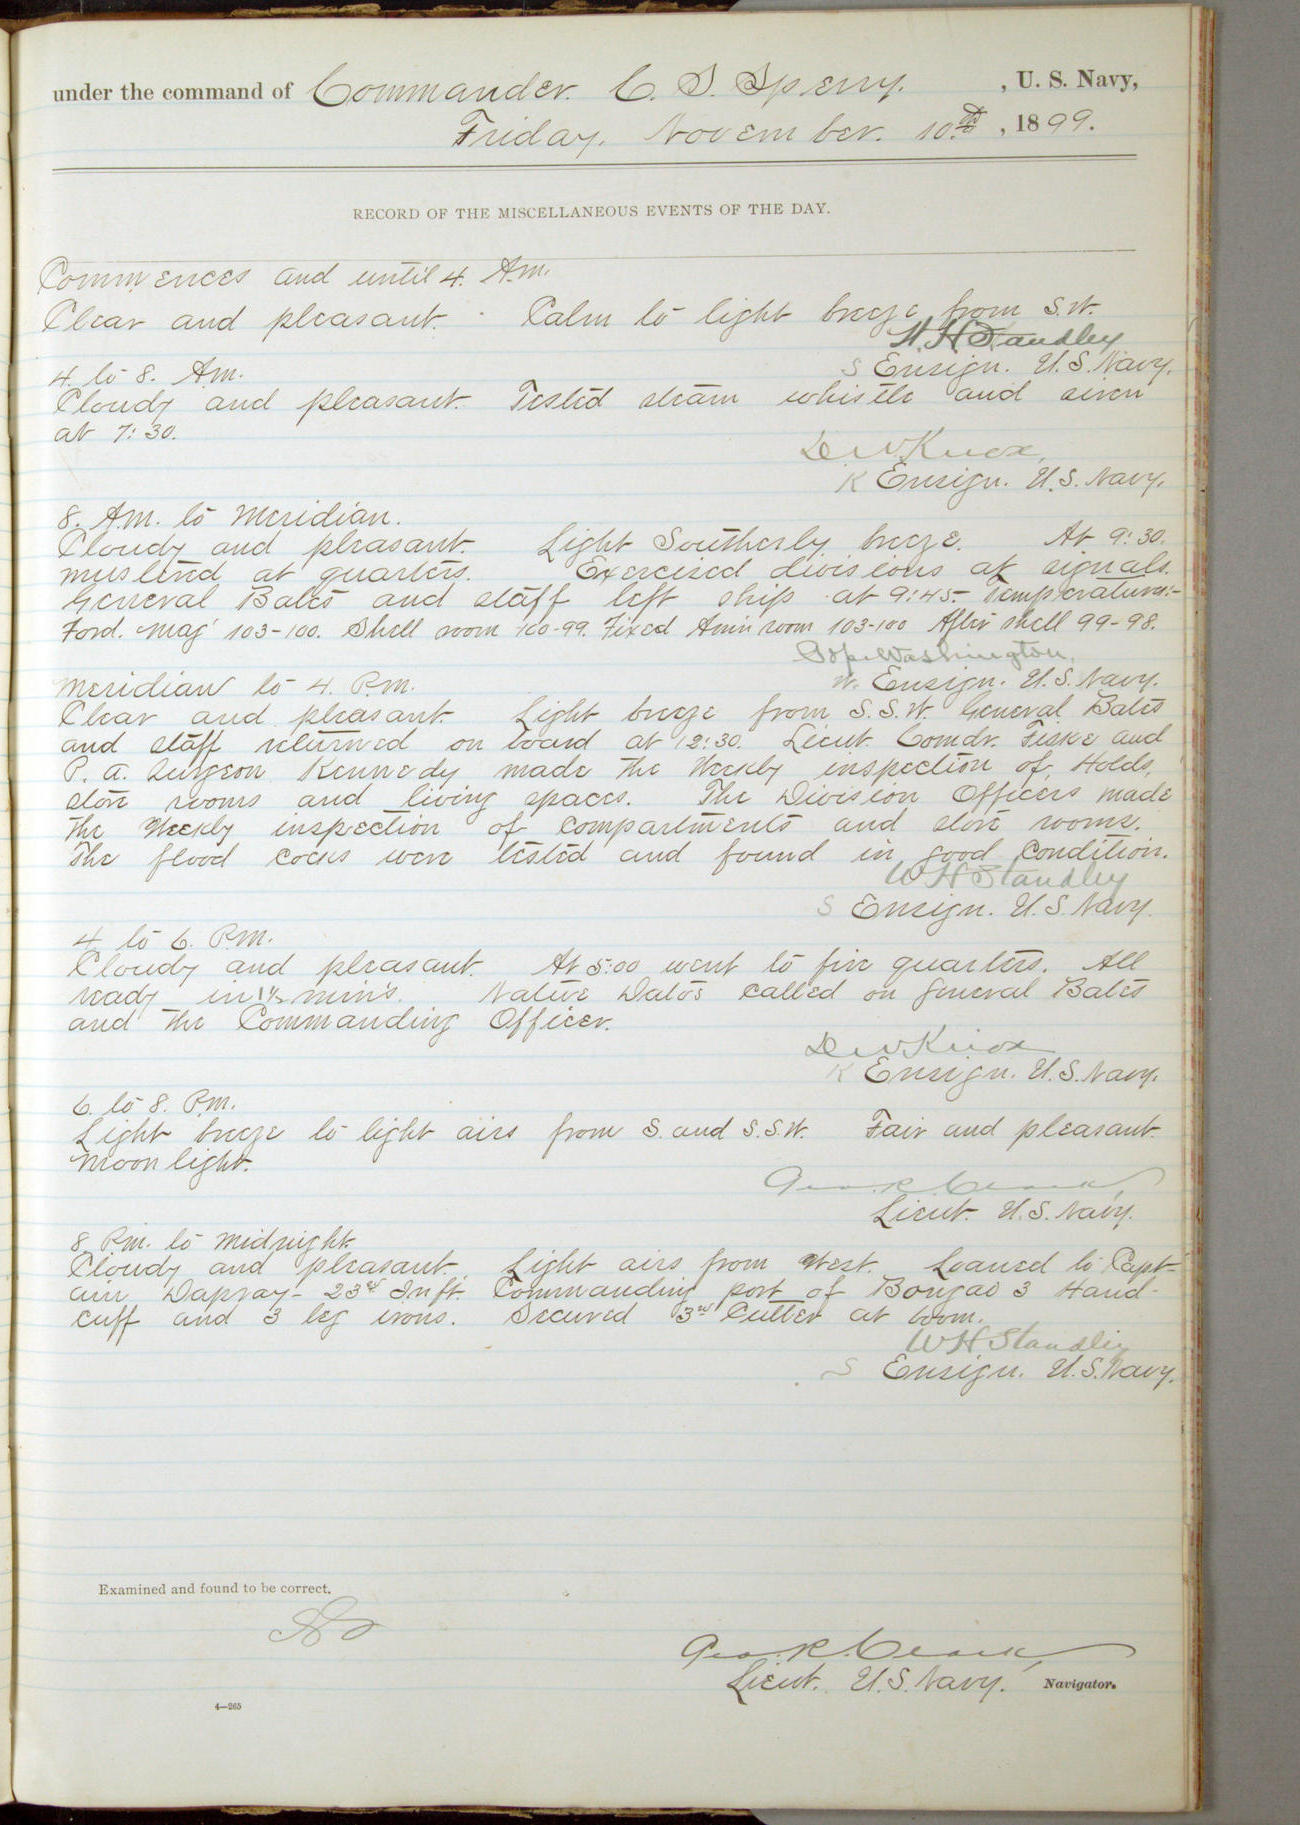 under the command of Commander. C. S. Sperry. , U. S. Navy,
Friday, November. 10th , 1899.
RECORD OF THE MISCELLANEOUS EVENTS OF THE DAY.
Commences and until 4. A.m.
Clear and pleasant. Calm to light breeze from S.W.
W. H. Standley
S Ensign. U.S. Navy.
4. to 8. A.m.
Cloudy and pleasant. Tested steam whistle and siren
at 7:30.
D W Knox,
K Ensign. U.S. Navy.
8. A.m. to Meridian.
Cloudy and pleasant. Light Southerly breeze. At 9:30.
mustered at quarters. Exercised divisions at signals.
General Bates and staff left ship at 9:45- Temperatures:-
Ford. Mag' 103-100. Shell room 100-99. Fixed Am'n room 103-100 After shell 99-98.
Pope Washington.
W. Ensign. U.S. Navy.
Meridian to 4. P.m.
Clear and pleasant. Light breeze from S.S.W. General Bates
and staff returned on board at 12:30. Lieut. Comdr. Fiske and
P. A. Surgeon Kennedy made the Weekly inspection of, Holds,
store rooms and living spaces. The Division Officers made
the Weekly inspection of compartments and store rooms.
The flood cocks were tested and found in good condition.
W H Standley
S Ensign. U.S. Navy.
4 to 6. P.m.
Cloudy and pleasant. At 5:00 went to fire quarters. All
ready in 1½ mins. Native Datos called on General Bates
and the Commanding Officer.
D W Knox
K Ensign. U.S. Navy.
6. to 8. P.m.
Light breeze to light airs from S. and S.S.W. Fair and pleasant.
Moonlight.
Geo. R. Clark,
Lieut. U.S. Navy.
8 P.m. to midnight.
Cloudy and pleasant. Light airs from West. Loaned to Capt-
ain Dapray- 23rd Inft. Commanding port of Bongao 3 Hand-
cuff and 3 leg irons. Secured 3rd Cutter at boom.
W H Standley
S Ensign. U.S. Navy.
Examined and found to be correct.
Geo. R. Clark,
Lieut. U.S. Navy. Navigator.
4—265